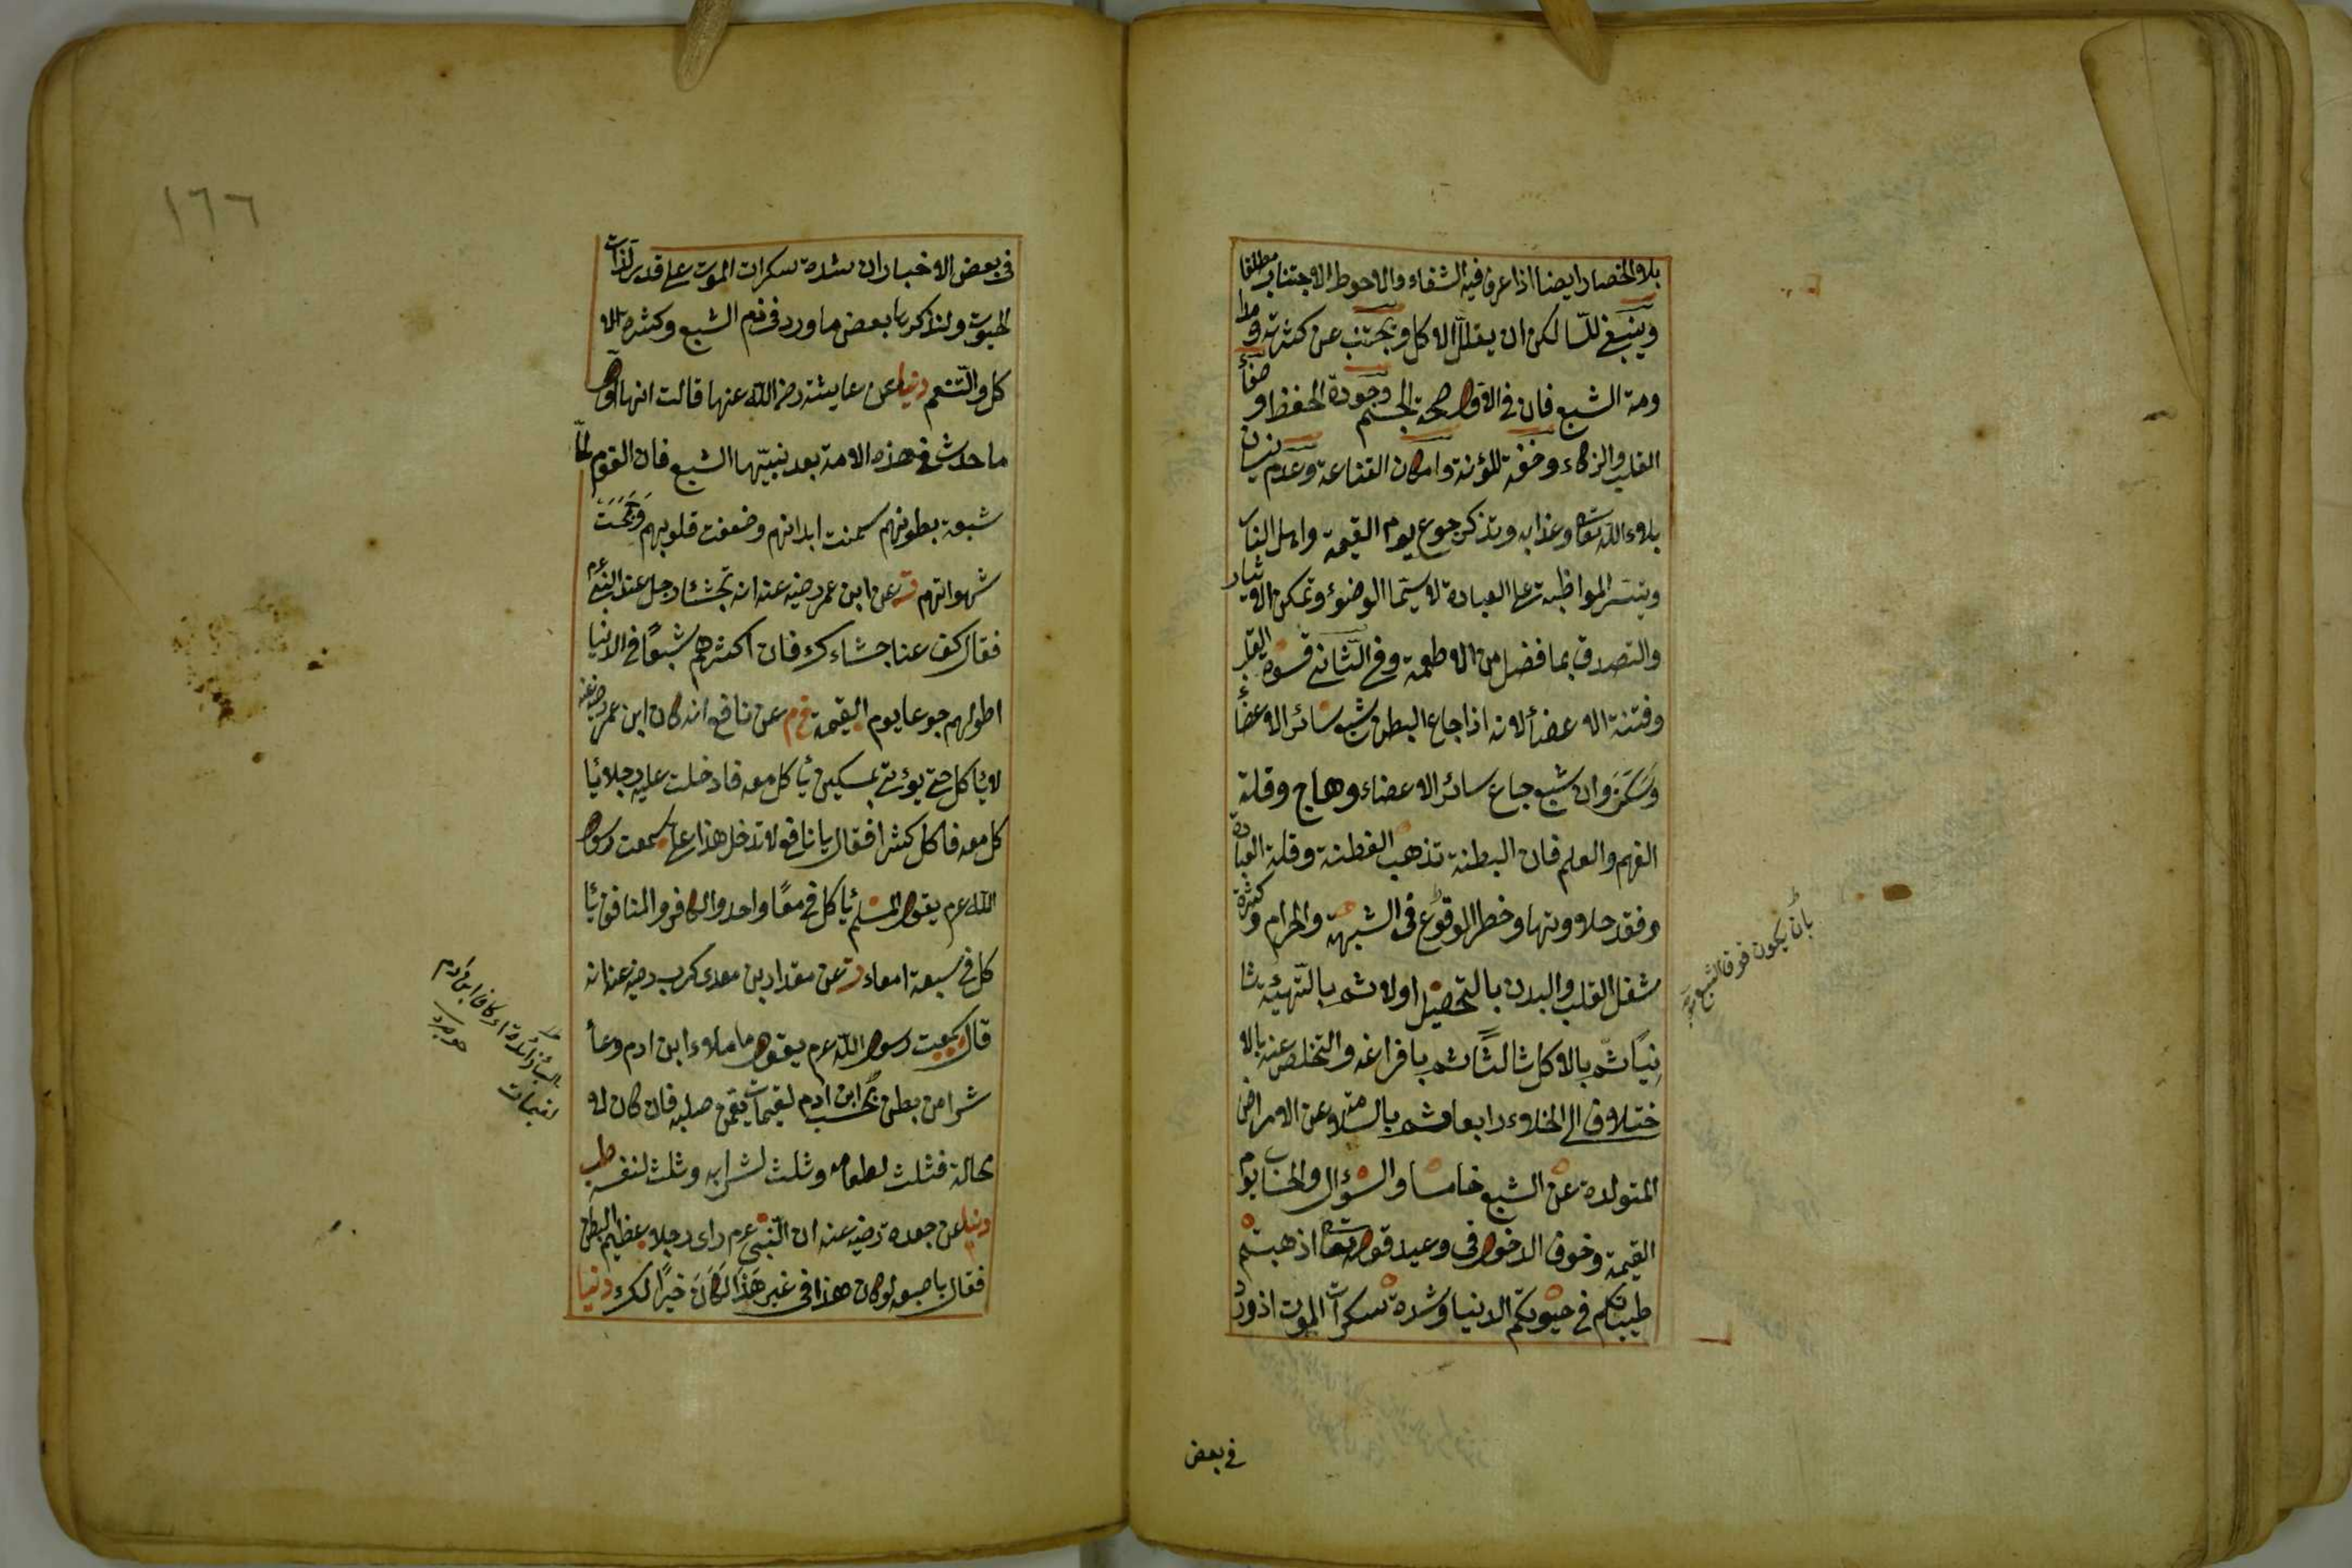 بلا انحصار ايضا اذا عرف فيه الشفاء والاحوط الاجتناب مطلقا
وينبغى للسالك ان يقلل الاكل ويجتنب عن كثرته ومدا
ومة الشبع فان فى الاول صحة الجسم وجودة الحفظ وصفاء
القلب والزكاء وخفة المؤنة وامكان القناعة وعدم نسيان
بلاء الله تعا وعذابه وتذكر جوع يوم القيمة واهل النار
وتيسر المواظبة على العبادة لا سيما الوضوء وتمكن الايثار
والتصدق بما فضل من الاطعمة وفى الثانى قسوة القلب
وفتنة الاعضاء لانه اذا جاع البطن شبع سائر الاعضاء
وسكن وان شبع جاع سائر الاعضاء وهاج وقلة
الفهم والعلم فان البطنة تذهب الفطنة وقلة العبادة
وفقد حلاوتها وخطر الوقوع فى الشبهة والحرام وكثرة
شغل القلب والبدن بالتحصيل اولا ثم بالتهيئة ثا
نيا ثم بالاكل ثالثا ثم بافراغه والتخلص عنه بالا
ختلاف الى الخلاء رابعا ثم بالسلامة عن الامراض
المتولدة عن الشبع خامسا والسؤال والحساب يوم
القيمة وخوف الدخول فى وعيد قوله تعا اذهبتم
طيباتكم فى حيوتكم الدنيا وشدة سكرات الموت اذ ورد
بان يكون فوق الشبع
فى بعض
١٦٦
فى بعض الاخبار ان شدة سكرات الموت على قدر لذات
الحيوت ولنذكر بعض ما ورد فى ذم الشبع وكثرة الا
كل والتنعم دنيا عن عايشة رضى الله عنها قالت انها اول
ما حدث فى هذه الامة بعد نبيها الشبع فان القوم لما
شبعت بطونهم سمنت ابدانهم وضعفت قلوبهم وجمحت
شهواتهم ت عن ابن عمر رضى عنه انه تجشئا رجل عند النبى عم
فقال كف عنا جشاءك فان اكثرهم شبعا فى الدنيا
اطولهم جوعا يوم القيمة خ م عن نافع انه كان ابن عمر رضى عنه
لا ياكل حتى يؤتى بمسكين ياكل معه فادخلت عليه رجلا يا
كل معه فاكل كثيرا فقال يا نافع لا تدخل هذا على سمعت رسول
الله عم يقول المسلم ياكل فى معا واحد والكافر والمنافق يا
كل فى سبعة امعاء ت عن مقداد بن معدى كرب رضى عنه انه
قال سمعت رسول الله عم يقول ما ملاء ابن ادم وعا
شرا من بطن بحسب ابن ادم لقيمات يقمن صلبه فان كان لا
محالة فثلث لطعامه وثلث لشرابه وثلث لنفسه طب
دنيا عن جعدة رضى عنه ان النبى عم راى رجلا عظيم البطن
فقال باصبعه لو كان هذا فى غير هذا لكان خيرا لك دنيا